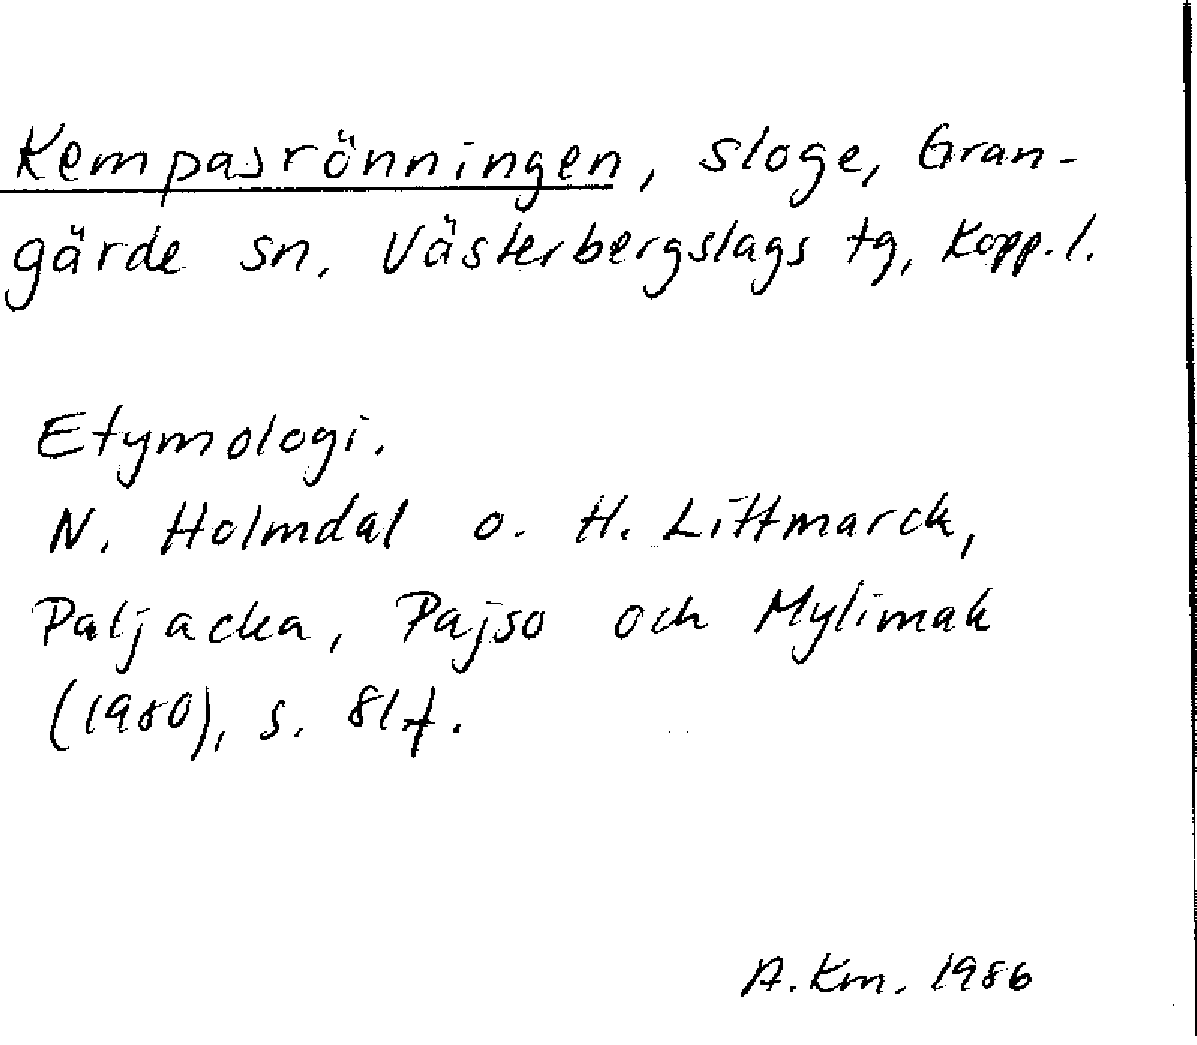 Kempasrönningen, sloge, Gran-
gärde sn. Västerbergslags tg, Kopp.l.
Etymologi.
N. Holmdal o. H. Littmarck,
Paljacka, Pajso och Mylimak
(1980), s. 81f.
A.Km. 1986